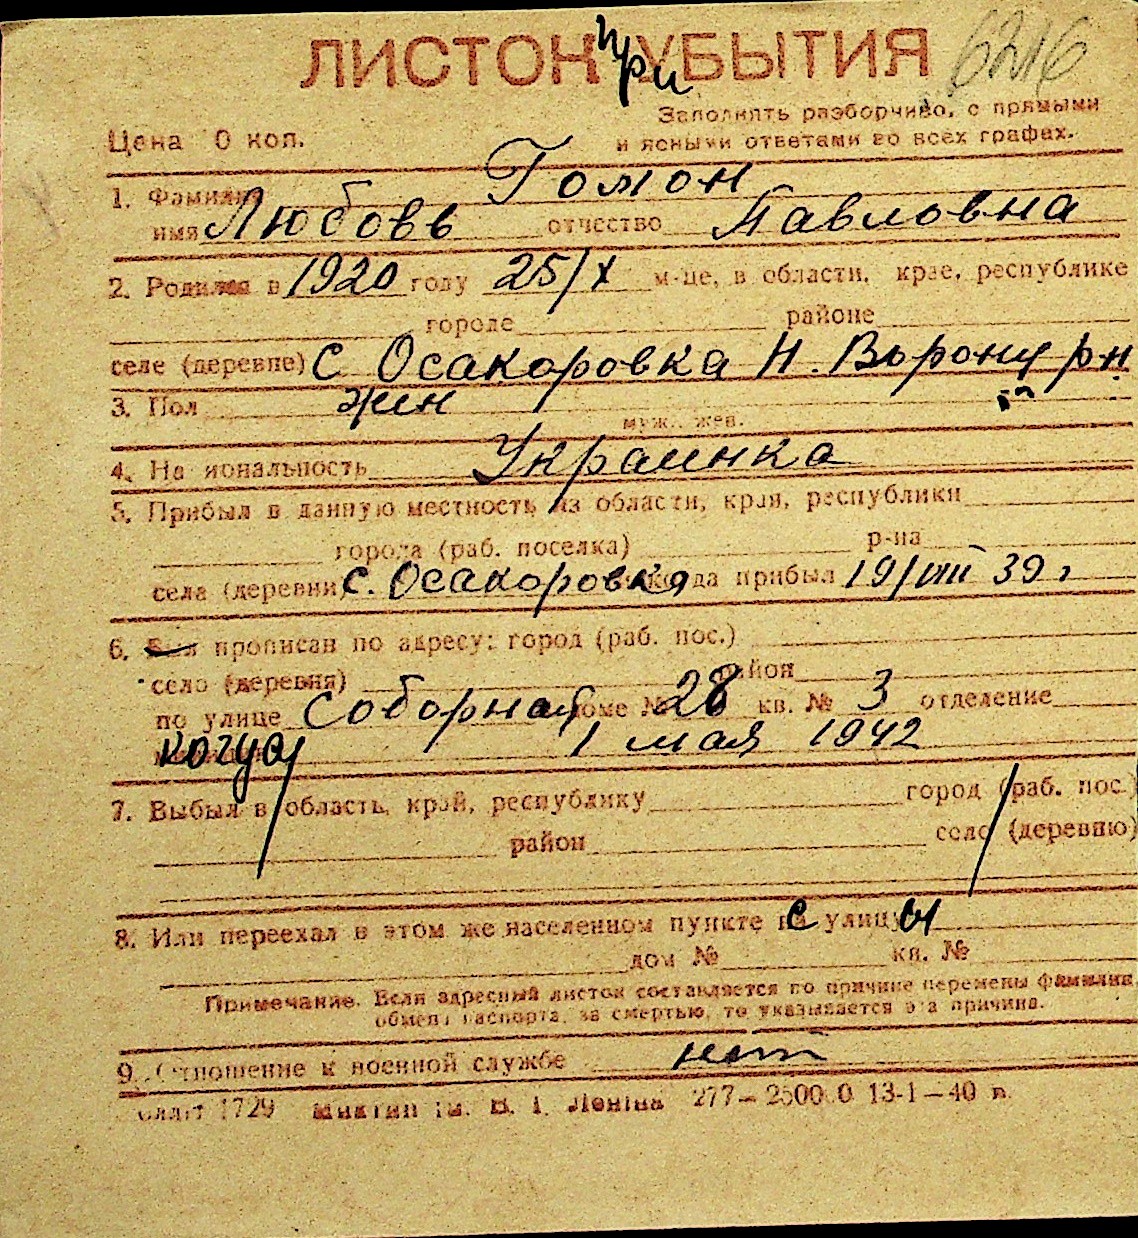 ЛИСТОК при УБЫТИЯ 6216
Цена 0 коп.
Заполнять разборчиво, с прямыми
и ясными ответами во всех графах.
1. Фамилия Гомон
имя Любовь отчество Павловна
2. Родился в 1920 году 25/X м-це, в области, крае, республике
городе районе
селе (деревне) с Осакоровка Н. Воронц р-н
3. Пол жен
муж., жен.
4. На иональность Украинка
5. Прибыл в данную местность из области, края, республики
города (раб. поселка) р-на
села (деревни) с. Осакоровка когда прибыл 19/VIII 39 г
6. Был прописан по адресу: город (раб. пос.)
село (деревня) район
по улице Соборная доме № 28 кв. № 3 отделение
когда 1 мая 1942
7. Выбыл в область, край, республику город (раб. пос.)
район село (деревню)
8. Или переехал в этом же населенном пункте с улицы
дом № кв. №
Примечание. Если адресный листок составляется по причине перемены фамилии,
обмена паспорта, за смертью, то указывается эта причина.
9. Отношение к военной службе нет
1729 В. І. Леніна 277—2500.0 13-1—40 в.